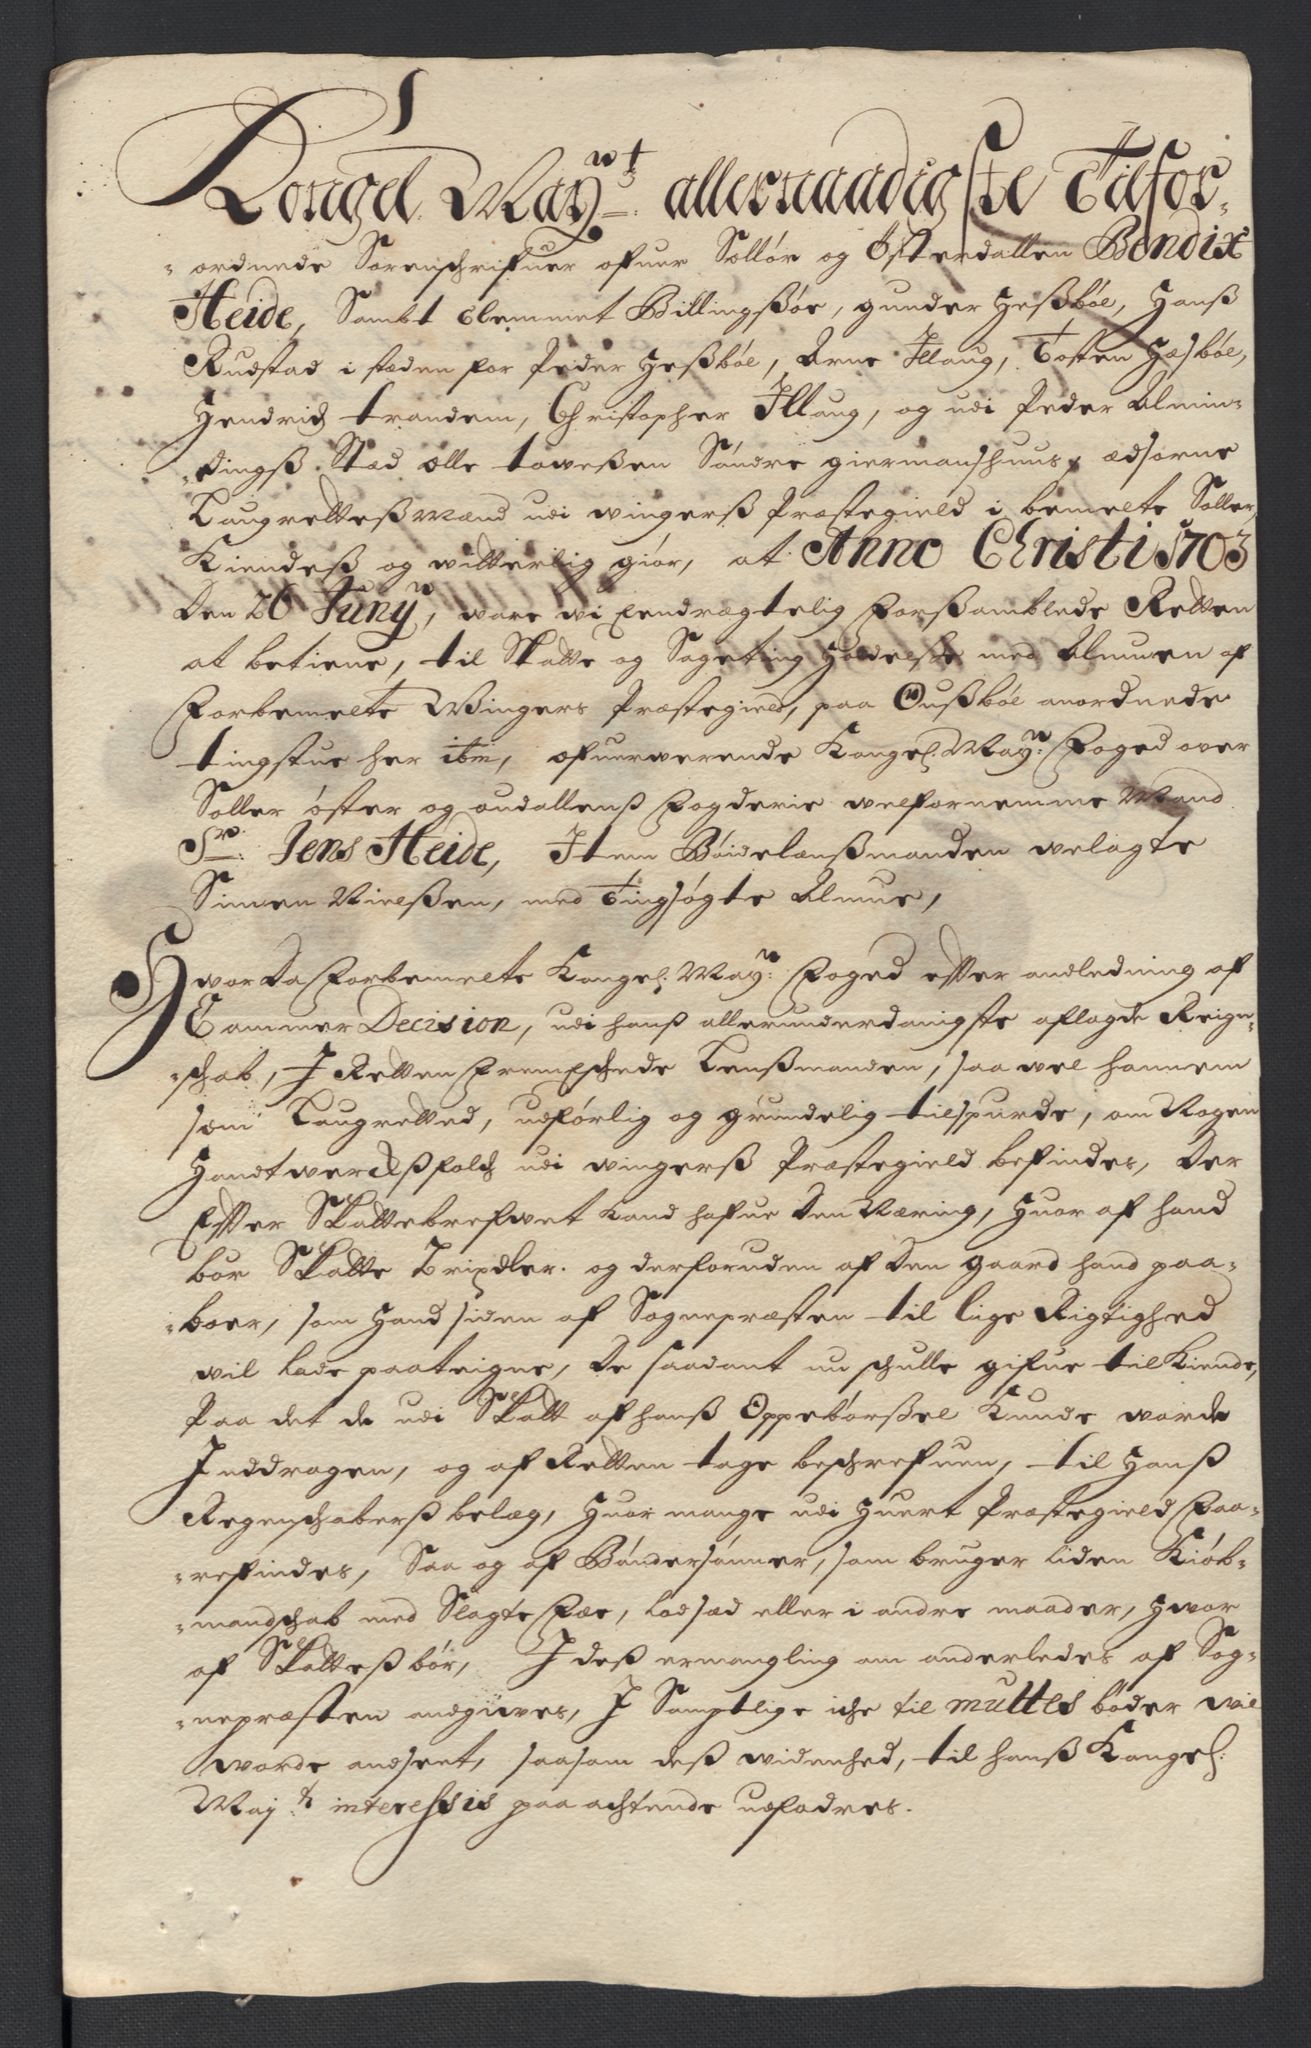 Kongel. May:ts allernaadigste Tilfor-
-ordnede Sorenschrifuer ofuer Sollør og Østerdallen Bendix
Heide, Sambt Clemmet Billingsßøe, gunder Heßbøl, Hanß
Rudstad i steden for Peder Heßbøl, Arne Illaug, Tosten Hesbøl,
Hendrich trandem, Christopher Illaug, og udi Peder Almin-
-dingß Sted olle towesßen Søndre giermanshuus, edsorne
Laugrettesßmænd udi wingerß Præstegield i bemelte Soller,
Kiendeß og witterlig giør, at Anno Christi 1703
den 26 Juny, ware wi Eendrægtelig Forßamblede Retten
at betiene, til Skatte og Sageting Holdelße med Almuen af
Forbemelte Wingers Præstegield, paa Oußbøl anordnede
tingstue her ibm, ofuerwerende Kongel: May: Foged over
Soller øster og oudallenß Fogderie welfornemme Mand
Sr: Jens Heide, Item Bøidelænßmanden welagte
Simen Nielßen, med Tingsøgte Almue,
Hvorda Forbemelte Kongel: May: Foged efter andledning af
Cammer Decision, udi hanß allerunderdanigste aflagde Reign-
-schab, I Retten Fremeschede Lenßmanden, saa wel hannem
som Laugretted, udførlig og grundelig tilspurde, om Nogen
Handtwerchßfolch udi wingerß Præstegield befindes, der
Efter Skattebrefwet kand hafue den Næring, Huor af hand
bør Skatte 2 rixdler. og derforuden af den gaard hand paa-
-boer, som Hand siden af Sognepræsten til lige Rigtighed
wil lade paateigne, de saadant nu schulle gifue tilkiende,
Paa det de udi Skatt af hanß Oppebørßel Kunde worde
Inddragen, og af Retten tage beschrefuen, til Hanß
Regenschaberß belæg, Huor mange udi Huert Præstegield Faa-
-refindes, Saa og af Bøndersønner, som bruger liden Kiøb-
-mandschab med Slagte Fæe, ladsæd eller i andre maader, Hwor
af Skatteß bør, I deß ermangling om anderledes af Sog-
-nepræsten andgiwes, I Samptlige iche til multes bøder wil
worde andseet, saasom deß widenhed, til hanß Kongel:
May:ts interessis paa achtende udfodres.